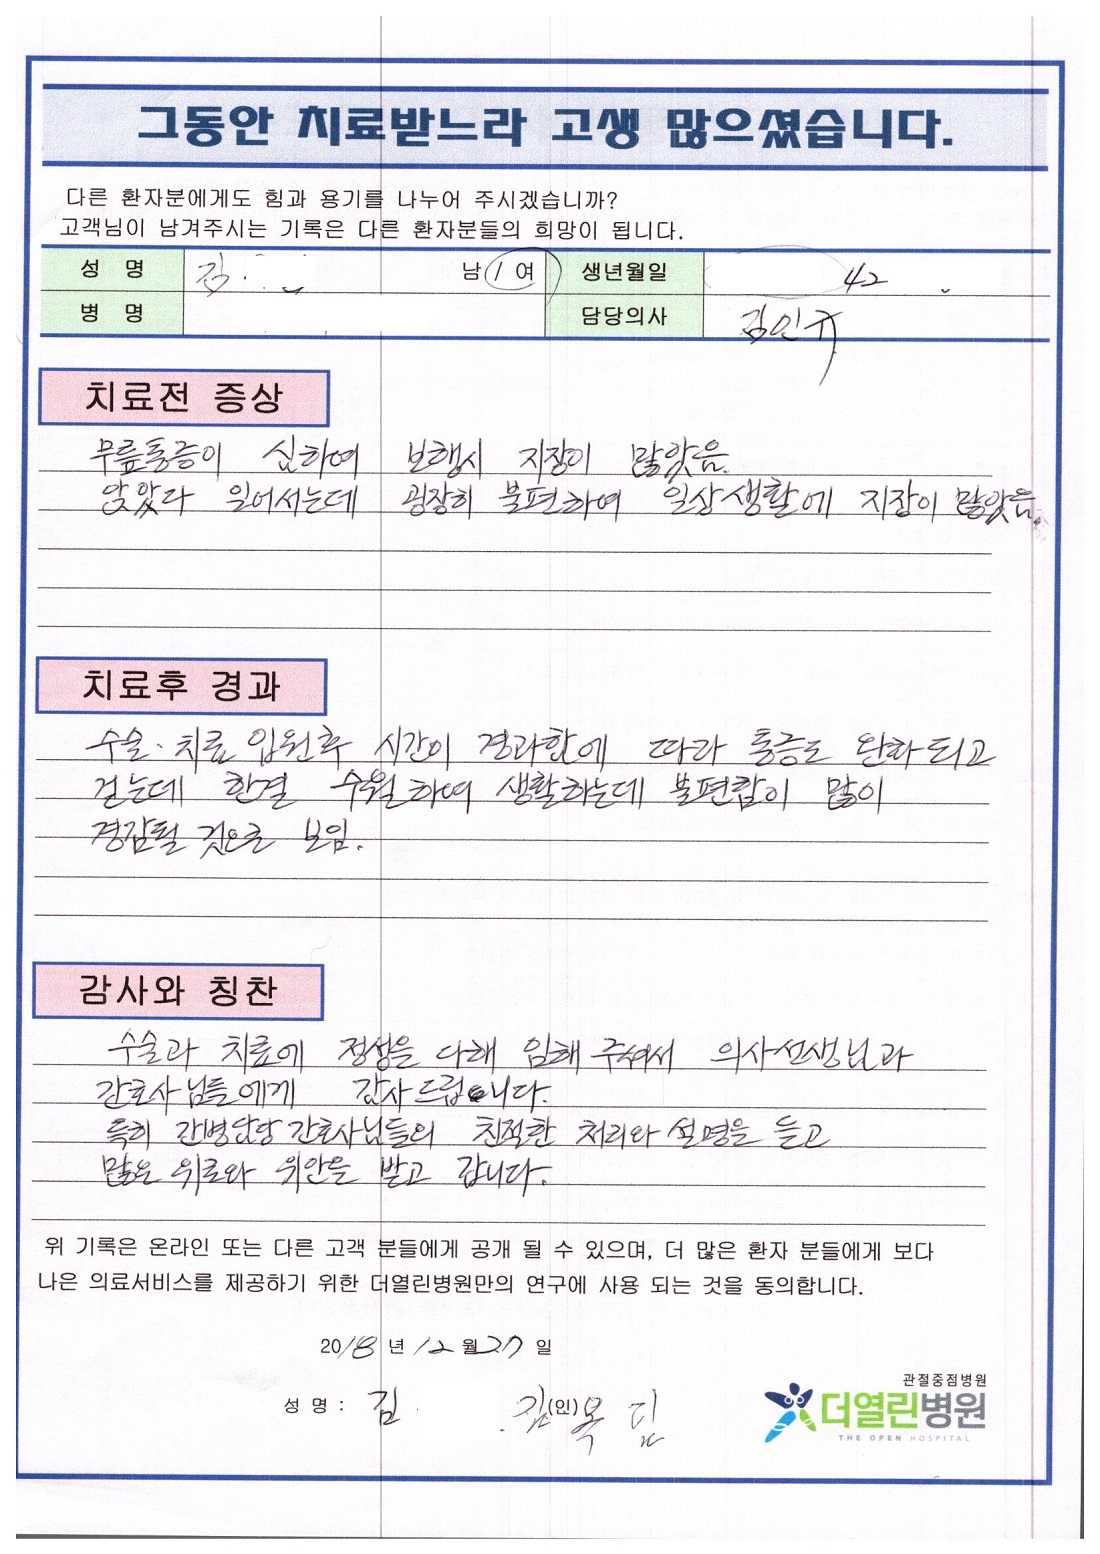 그동안 치료받느라 고생 많으셨습니다.
다른 환자분에게도 힘과 용기를 나누어 주시겠습니까?
고객님이 남겨주시는 기록은 다른 환자분들의 희망이 됩니다.
성 명 김 남 / 여 생년월일 42
병 명 담당의사 김인규
치료전 증상
무릎통증이 심하여 보행시 지장이 많았음.
앉았다 일어서는데 굉장히 불편하여 일상생활에 지장이 많았음.
치료후 경과
수술·치료 입원후 시간이 경과함에 따라 통증도 완화되고
걷는데 한결 수월하여 생활하는데 불편함이 많이
경감될 것으로 보임.
감사와 칭찬
수술과 치료에 정성을 다해 임해 주셔서 의사선생님과
간호사님들에게 감사드립니다.
특히 간병담당 간호사님들의 친절한 처리와 설명을 듣고
많은 위로와 위안을 받고 갑니다.
위 기록은 온라인 또는 다른 고객 분들에게 공개 될 수 있으며, 더 많은 환자 분들에게 보다
나은 의료서비스를 제공하기 위한 더열린병원만의 연구에 사용 되는 것을 동의합니다.
2018 년 12 월 27 일
성 명 : 김 (인)
관절중점병원
더열린병원
THE OPEN HOSPITAL